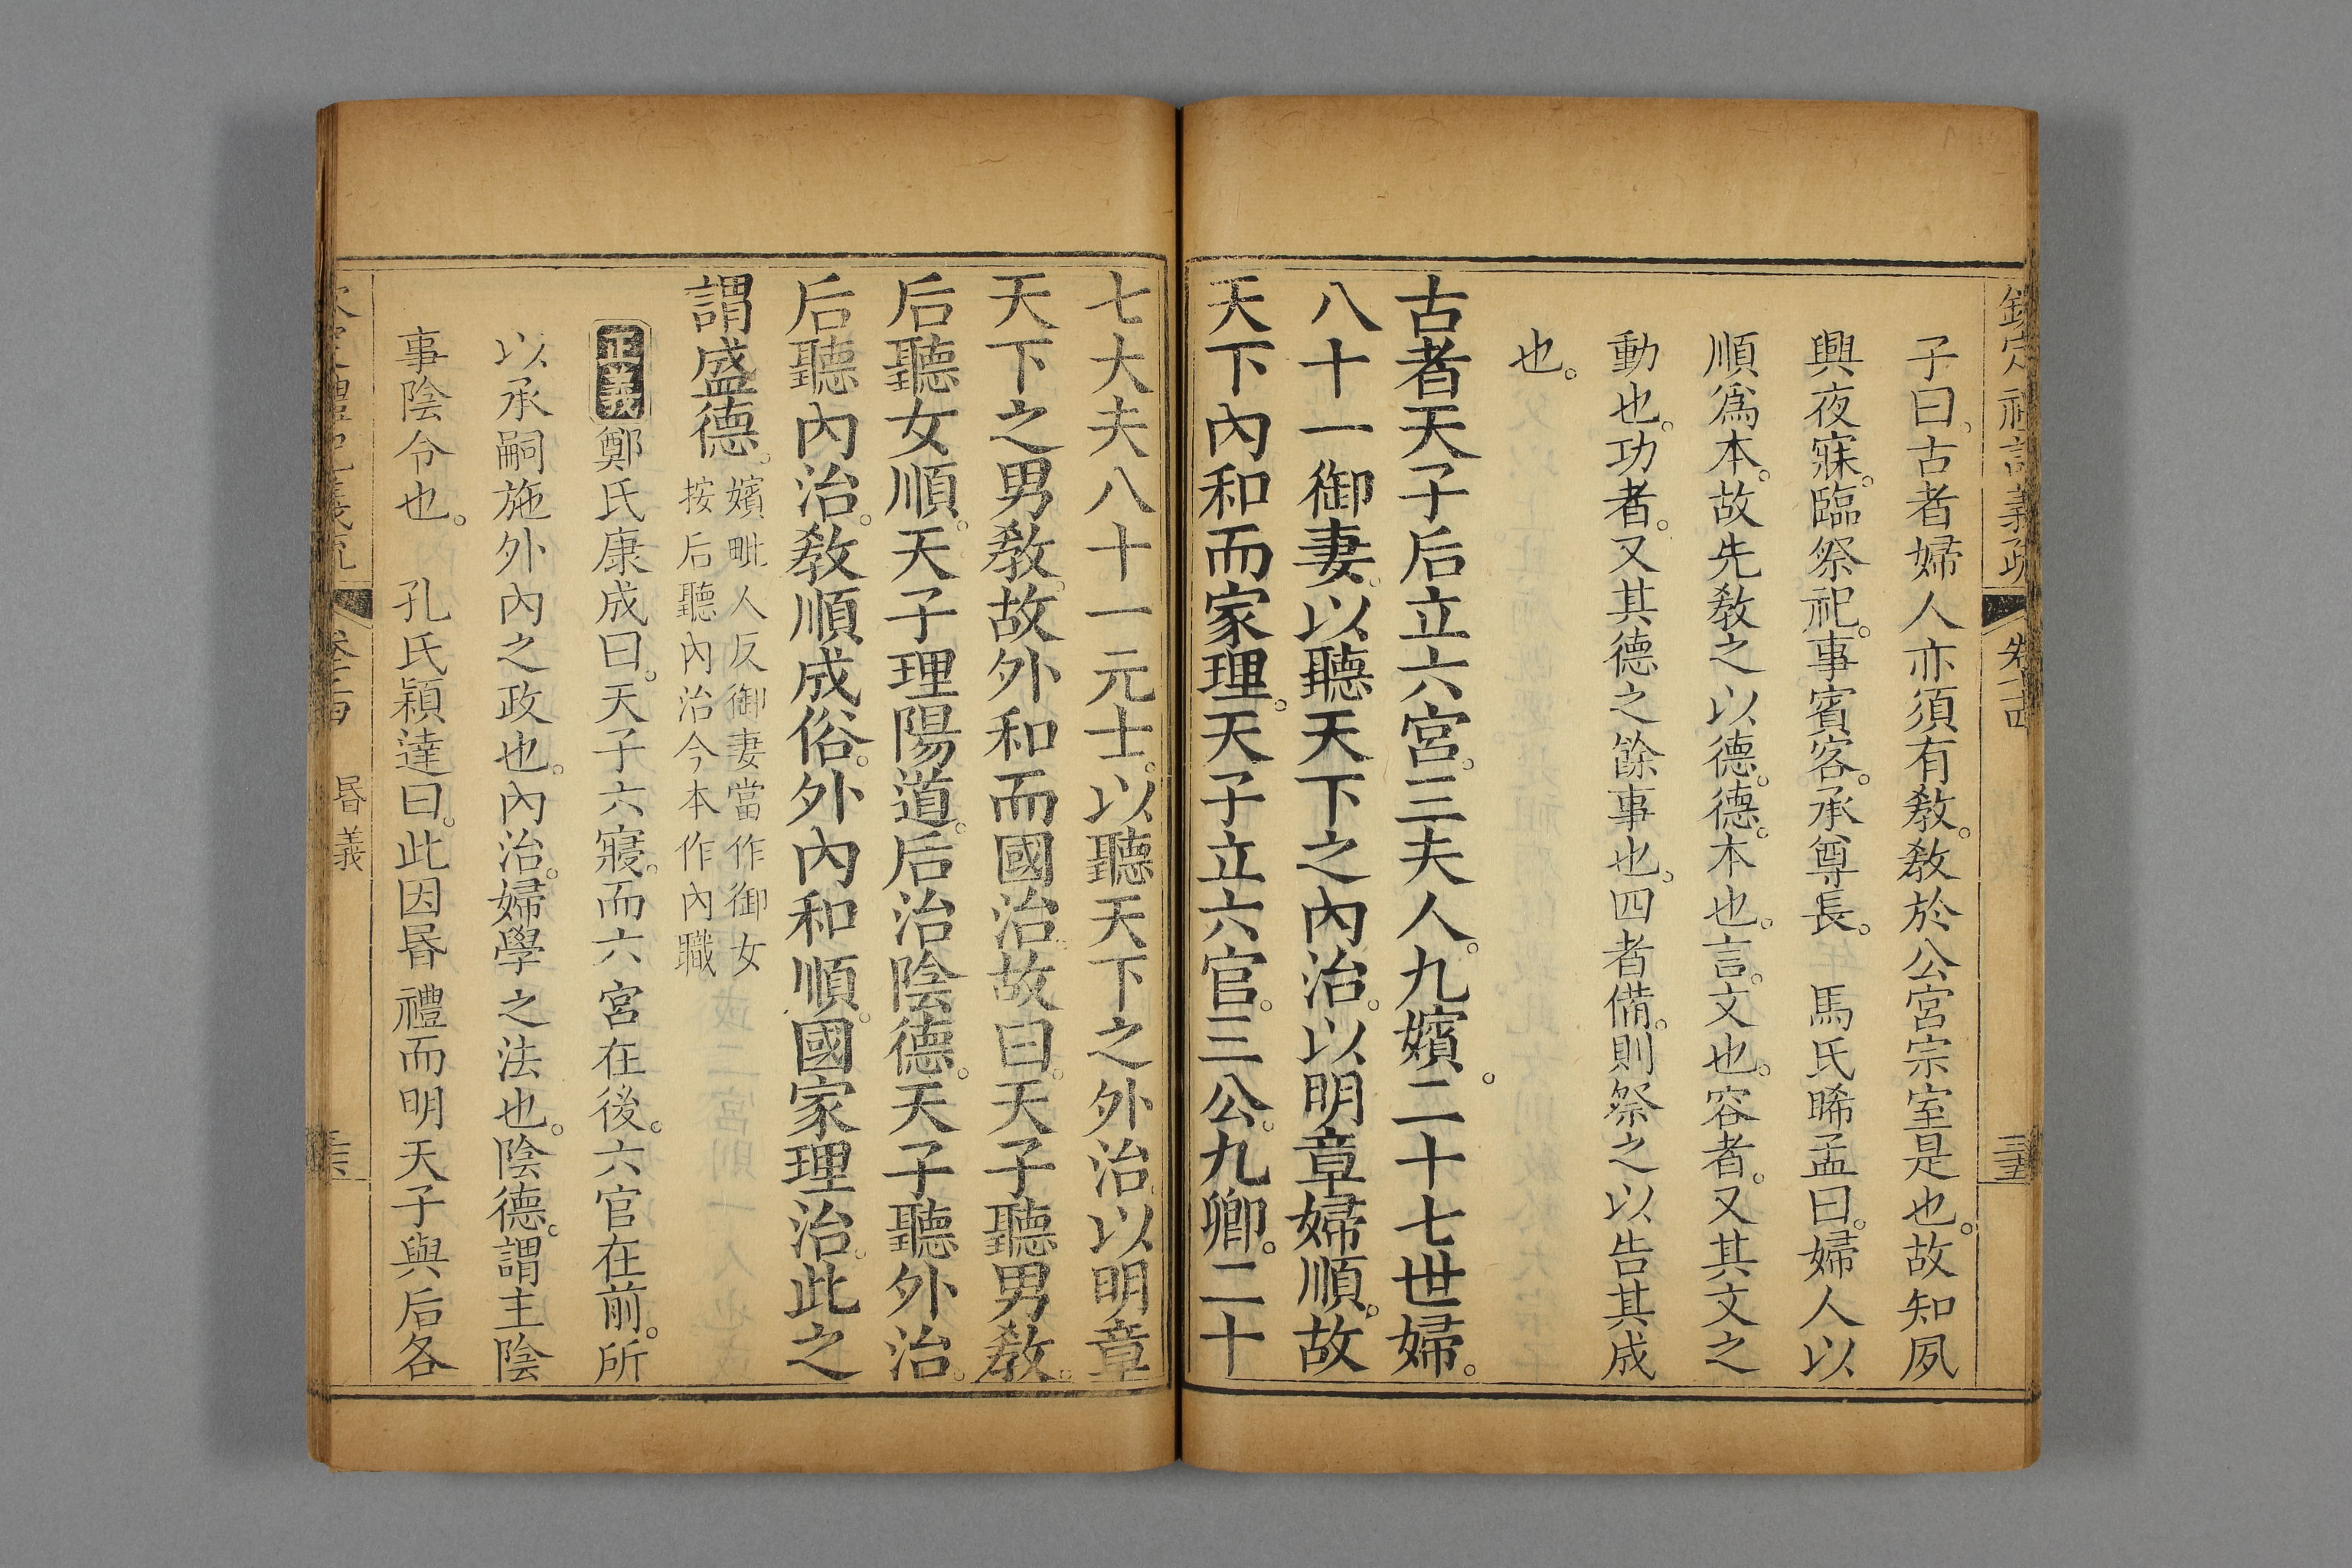 子曰。古者婦人亦須有敎。敎於公宮宗室是也。故知夙
興夜寐。臨祭祀。事賓客。承尊長。　馬氏晞孟曰。婦人以
順爲本。故先敎之以德。德。本也。言。文也。容者。又其文之
動也。功者。又其德之餘事也。四者備。則祭之以告其成
也。
古者天子后立六宮。三夫人。九嬪。二十七世婦。
八十一御妻。以聽天下之內治。以明章婦順。故
天下內和而家理。天子立六官。三公。九卿。二十
七大夫八十一元士。以聽天下之外治。以明章
天下之男敎。故外和而國治。故曰。天子聽男敎。
后聽女順。天子理陽道。后治陰德。天子聽外治。
后聽內治。敎順成俗。外內和順。國家理治。此之
謂盛德。
嬪毗人反御妻當作御女
按后聽內治今本作內職
正義鄭氏康成曰。天子六寢。而六宮在後。六官在前。所
以承嗣施外內之政也。內治。婦學之法也。陰德。謂主陰
事陰令也。　孔氏穎達曰。此因昬禮而明天子與后各
昬義